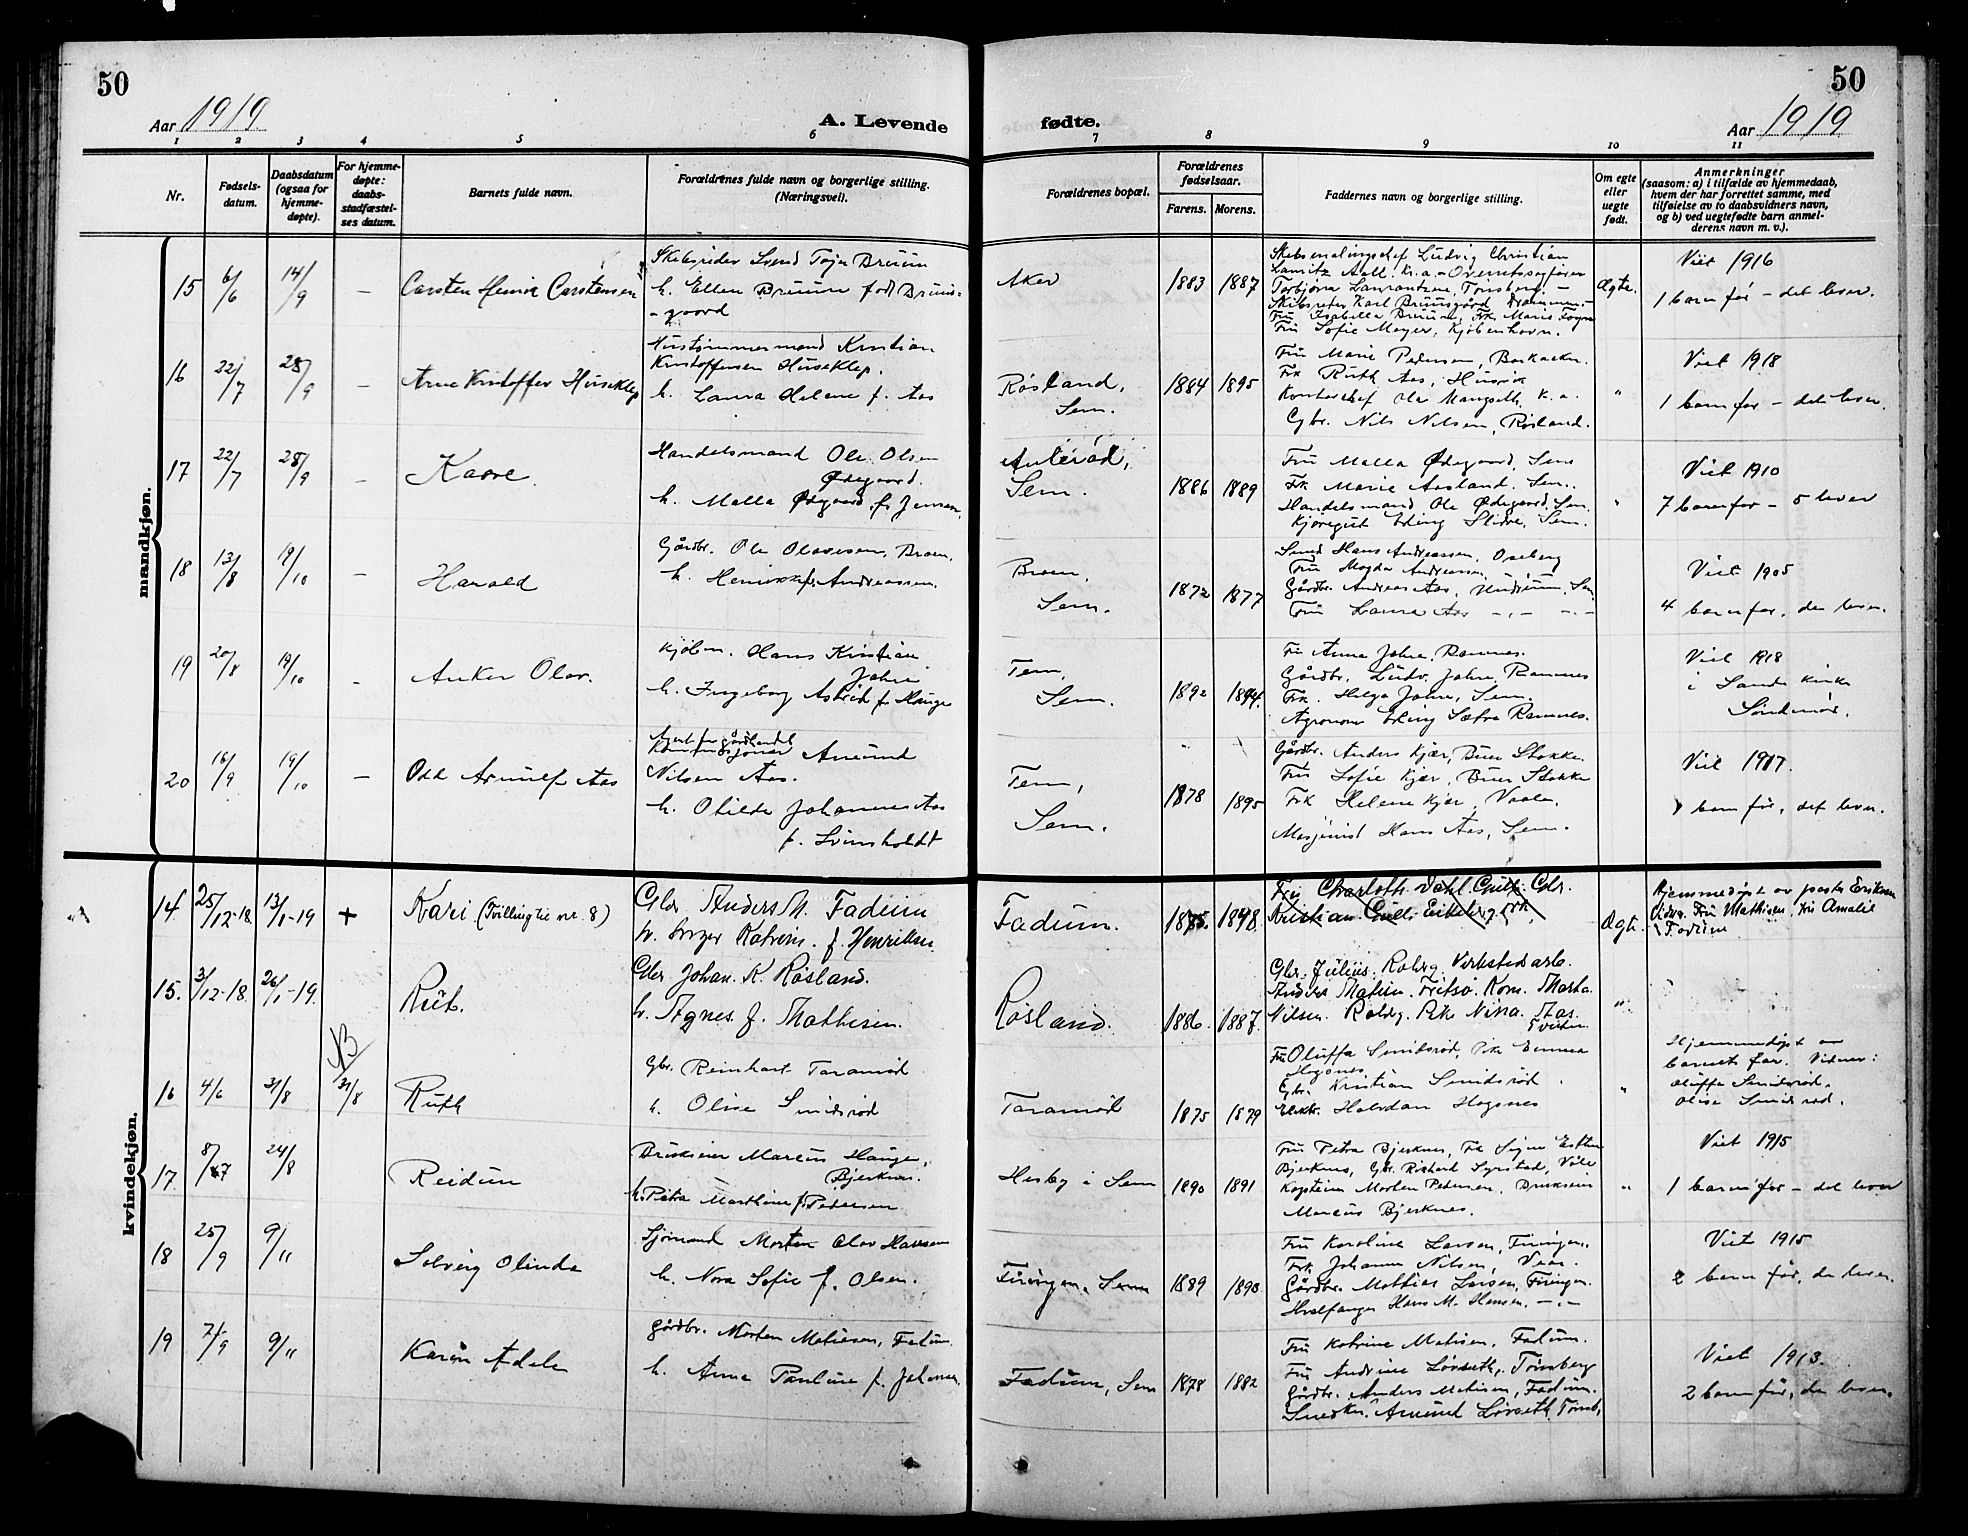 50
50
Aar 1919
A. Levende
fødte.
Aar 1919
1 2 3 4 5 6 7 8 9 10 11
Nr.
Fødsels-
datum.
Daabsdatum
(ogsaa for
hjemme-
døpte).
For hjemme-
døpte:
daabs-
stadfæstel-
ses datum.
Barnets fulde navn.
Forældrenes fulde navn og borgerlige stilling.
(Næringsvei).
Forældrenes bopæl.
Forældrenes
fødselsaar.
Farens. Morens.
Faddernes navn og borgerlige stilling.
Om egte
eller
uegte
født.
Anmerkninger
(saasom: a) i tilfælde av hjemmedaab,
hvem der har forrettet samme, med
tilføielse av to daabsvidners navn,
og b) ved uegtefødte barn anmel-
derens navn m. v.).
mandkjøn.
15 6/6 14/9 – Carsten Henrik Carstensen
Skibsreder Svend Bruun
h. Ellen Bruun født Bruus-
gaard
Aker
1883 1887
Skibsmalingschef Ludvig Christian
Skibsreder Karl Bruusgård Drammen –
Fru Isabella Bruun, Frk. Marie
Fru Sofie Meyer, Kjøbenhavn.
Ægte.
Viet 1916
1 barn før – det lever.
16 22/7 28/9 – Arne Kristoffer Huseklep
Hustømmermand Kristian
Kristoffersen Huseklep.
h. Laura Helene f. Aas
Røsland,
Sem.
1884 1895
Fru Marie Pedersen,
Frk Ruth Aas, Husvik
Kontorchef Ole k. a.
Gbr. Nils Nilsen, Røsland.
"
Viet 1918
1 barn før – det lever.
17 22/7 28/9 – Kaare.
Handelsmand Ole Olsen
Ødegaard.
h. Malla Ødegaard f. Jensen.
Auterød,
Sem.
1886 1889
Fru Malla Ødegaard, Sem
Frk. Marie Aasland. Sem.
Handelsmand Ole Ødegaard, Sem.
Kjøregut Erling Sem.
"
Viet 1910
7 barn før – 5 lever
18 13/8 19/10 – Harald
Gårdbr. Ole Olavesen, Broen.
h. f. Andreassen.
Broen,
Sem.
1872 1877
Smed Hans Andreassen, Oseberg
Fru Magda Andreassen
Gårdbr. Andreas Aas, Sem
Fru Laura Aas –„– –„–
Viet 1905
4 barn før, de lever.
19 20/8 19/10 – Anker Olav.
Kjøbm. Hans Kristian
Jahre
h. Ingeborg Astrid f. Hauge
Tem,
Sem.
1892 1894.
Fr. Anna Jahre, Ramnes.
Gårdbr. Ludv. Jahre, Ramnes
Frk. Helga Jahre, Sem.
Agronom Erling Sætre Ramnes.
Viet 1918
i Sande kirke
Søndmør.
20 16/9 19/10 – Odd Arnulf Aas
Amund
Nilsen Aas.
h. Otilde Johanne Aas
f. Svinsholdt
Tem,
Sem.
1878 1895
Gårdbr. Anders Kjær, Bruer Stokke
Fru Sofie Kjær, Bruer Stokke
Frk Helene Kjær, Vaale.
Maskinist Hans Aas, Sem.
Viet 1917.
1 barn før, det lever.
kvindekjøn.
14. 25/12-18. 13/1-19 + Kari (Tvilling til nr. 8)
Gbr. Anders M. Fadum
h. Katrine. f. Henriksen
Fadum.
1875. 1878.
Fru Charlotte Dahl Gbr.
Kristian
Ægte
Hjemmedøpt av pastor Eriksen
Vidner. Fru Mathisen, fru Amalie
Fadum
15. 3/12-18. 26/1-19. Rut.
Gbr. Johan. K. Røsland.
h. Agnes f. Mathisen.
Røsland.
1886. 1887.
Gbr. Julius. Roberg. Verkstedsarb.
Anders Matisen. Tritsø. Kone. Marta.
Nilsen. Roberg. Pike Nina. Aas.
"
NB
16 4/6 31/8 31/8 Ruth
Gbr. Reinhart Taranrød
h. Olise Smidsrød
Taranrød
1875 1879
Fru Oluffa Smidsrød, Pike Emma
Hogsnes
Gbr. Kristian Smidsrød
Elektr. Halvdan Hogsnes
"
Hjemmedøpt av
barnets far. Vidner:
Oluffa Smidsrød.
Olise Smidsrød.
17. 8/7 24/8 Reidun
Brukseier Marcus Hauger
Bjerknes.
h. Petra Marthine f. Pedersen
Hesby i Sem
1890 1891
Fru Petra Bjerknes, Frk Signe Esther
Bjerknes, Gbr. Richard Syrstad, Våle
Kaptein Morten Pedersen, Brukseier
Marcus Bjerknes.
"
Viet 1915
1 barn før – det lever
18 25/9 9/11 Solveig Olinda
Sjømand Morten Olav Hansen
h. Nora Sofie f. Olsen.
Furingen, Sem
1889 1890
Fru Karoline Larsen, Furingen.
Frk. Johanne Nilsen, Vear.
Gårdbr. Mathias Larsen, Furingen.
Hvalfanger Hans M. Hansen, –„–
Viet 1915
2 barn før, de lever.
19 7/9 9/11 Karin Adele
Gårdbr. Morten Matisen, Fadum.
h. Anna Pauline f. Johansen.
Fadum, Sem
1878 1882
Fru Katrine Matisen, Fadum.
Fru Andrine Løvseth, Tønsberg
Gårdbr. Anders Matisen, Fadum.
Snedker Amund Løvseth, Tønsb.
Viet 1913.
2 barn før, de lever.